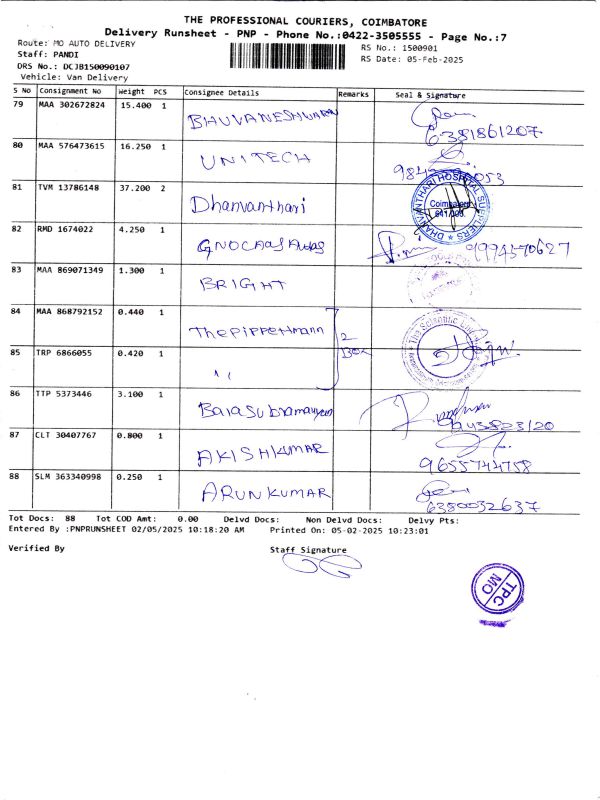 THE PROFESSIONAL COURIERS, COIMBATORE
Delivery Runsheet - PNP - Phone No.:0422-3505555 - Page No.:7
Route: MO AUTO DELIVERY
RS No.: 1500901
Staff: PANDI
RS Date: 05-Feb-2025
DRS No.: DCJB150090107
Vehicle: Van Delivery
S No Consignment No Weight PCS Consignee Details Remarks Seal & Signature
79 MAA 302672824 15.400 1 BHUVANESHWARAN
6381861207
80 MAA 576473615 16.250 1 UNITECH
81 TVM 13786148 37.200 2 Dhanvanthari
DHANVANTHARI HOSPITAL SUPPLIERS
Coimbatore
82 RMD 1674022 4.250 1
9994570627
83 MAA 869071349 1.300 1 BRIGHT
84 MAA 868792152 0.440 1 Thepippetmann 2 Box
The Scientific
85 TRP 6866055 0.420 1 "
86 TTP 5373446 3.100 1 Balasubramaniyam
87 CLT 30407767 0.800 1 AKISHKUMAR
9655744758
88 SLM 363340998 0.250 1 ARUN KUMAR
6380032637
Tot Docs: 88 Tot COD Amt: 0.00 Delvd Docs: Non Delvd Docs: Delvy Pts:
Entered By :PNPRUNSHEET 02/05/2025 10:18:20 AM Printed On: 05-02-2025 10:23:01
Verified By Staff Signature
TPC
MO